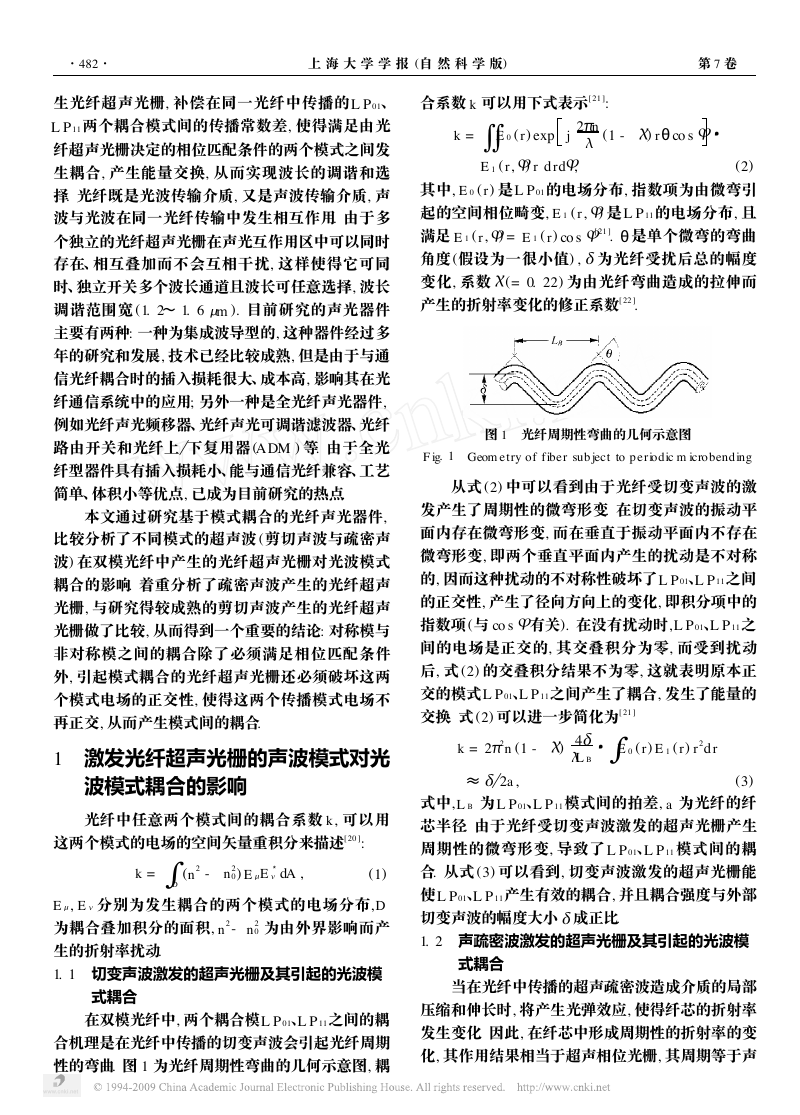 ·482·
上 海 大 学 学 报 (自 然 科 学 版)
第 7 卷
生光纤超声光栅, 补偿在同一光纤中传播的L P01、
L P11两个耦合模式间的传播常数差, 使得满足由光
纤超声光栅决定的相位匹配条件的两个模式之间发
生耦合, 产生能量交换, 从而实现波长的调谐和选
择. 光纤既是光波传输介质, 又是声波传输介质, 声
波与光波在同一光纤传输中发生相互作用. 由于多
个独立的光纤超声光栅在声光互作用区中可以同时
存在、相互叠加而不会互相干扰, 这样使得它可同
时、独立开关多个波长通道且波长可任意选择, 波长
调谐范围宽(1. 2～ 1. 6 μm ). 目前研究的声光器件
主要有两种: 一种为集成波导型的, 这种器件经过多
年的研究和发展, 技术已经比较成熟, 但是由于与通
信光纤耦合时的插入损耗很大、成本高, 影响其在光
纤通信系统中的应用; 另外一种是全光纤声光器件,
例如光纤声光频移器、光纤声光可调谐滤波器、光纤
路由开关和光纤上/下复用器(ADM ) 等. 由于全光
纤型器件具有插入损耗小、能与通信光纤兼容、工艺
简单、体积小等优点, 已成为目前研究的热点.
本文通过研究基于模式耦合的光纤声光器件,
比较分析了不同模式的超声波 (剪切声波与疏密声
波) 在双模光纤中产生的光纤超声光栅对光波模式
耦合的影响. 着重分析了疏密声波产生的光纤超声
光栅, 与研究得较成熟的剪切声波产生的光纤超声
光栅做了比较, 从而得到一个重要的结论: 对称模与
非对称模之间的耦合除了必须满足相位匹配条件
外, 引起模式耦合的光纤超声光栅还必须破坏这两
个模式电场的正交性, 使得这两个传播模式电场不
再正交, 从而产生模式间的耦合.
1 激发光纤超声光栅的声波模式对光
波模式耦合的影响
光纤中任意两个模式间的耦合系数 k, 可以用
这两个模式的电场的空间矢量重积分来描述[20]:
k = ∫D (n² - n₀²) EμEν* dA , (1)
Eμ, Eν 分别为发生耦合的两个模式的电场分布,D
为耦合叠加积分的面积, n²- n₀² 为由外界影响而产
生的折射率扰动.
1. 1 切变声波激发的超声光栅及其引起的光波模
式耦合
在双模光纤中, 两个耦合模L P01、L P11之间的耦
合机理是在光纤中传播的切变声波会引起光纤周期
性的弯曲. 图 1 为光纤周期性弯曲的几何示意图, 耦
合系数 k 可以用下式表示[21]:
k = ∬E0 (r) exp[ j 2πn/λ (1 - χ) rθcos φ] ·
E1 (r, φ) r drdφ, (2)
其中, E0 (r) 是L P01的电场分布, 指数项为由微弯引
起的空间相位畸变, E1 (r, φ) 是L P11的电场分布, 且
满足 E1 (r, φ) = E1 (r) cos φ[21]. θ是单个微弯的弯曲
角度(假设为一很小值) , δ 为光纤受扰后总的幅度
变化, 系数 χ(= 0. 22) 为由光纤弯曲造成的拉伸而
产生的折射率变化的修正系数[22].
LB
θ
δ
图 1 光纤周期性弯曲的几何示意图
Fig. 1 Geometry of fiber subject to periodic microbending
从式(2) 中可以看到由于光纤受切变声波的激
发产生了周期性的微弯形变. 在切变声波的振动平
面内存在微弯形变, 而在垂直于振动平面内不存在
微弯形变, 即两个垂直平面内产生的扰动是不对称
的, 因而这种扰动的不对称性破坏了L P01、L P11之间
的正交性, 产生了径向方向上的变化, 即积分项中的
指数项(与 cos φ有关). 在没有扰动时,L P01、L P11之
间的电场是正交的, 其交叠积分为零, 而受到扰动
后, 式(2) 的交叠积分结果不为零, 这就表明原本正
交的模式L P01、L P11之间产生了耦合, 发生了能量的
交换. 式(2) 可以进一步简化为[21]
k = 2π²n (1 - χ) 4δ/λLB · ∫E0 (r) E1 (r) r²dr
≈ δ/2a , (3)
式中,LB 为L P01、L P11模式间的拍差, a 为光纤的纤
芯半径. 由于光纤受切变声波激发的超声光栅产生
周期性的微弯形变, 导致了L P01、L P11模式间的耦
合. 从式(3) 可以看到, 切变声波激发的超声光栅能
使L P01、L P11产生有效的耦合, 并且耦合强度与外部
切变声波的幅度大小 δ 成正比.
1. 2 声疏密波激发的超声光栅及其引起的光波模
式耦合
当在光纤中传播的超声疏密波造成介质的局部
压缩和伸长时, 将产生光弹效应, 使得纤芯的折射率
发生变化. 因此, 在纤芯中形成周期性的折射率的变
化, 其作用结果相当于超声相位光栅, 其周期等于声
© 1994-2009 China Academic Journal Electronic Publishing House. All rights reserved. http://www.cnki.net